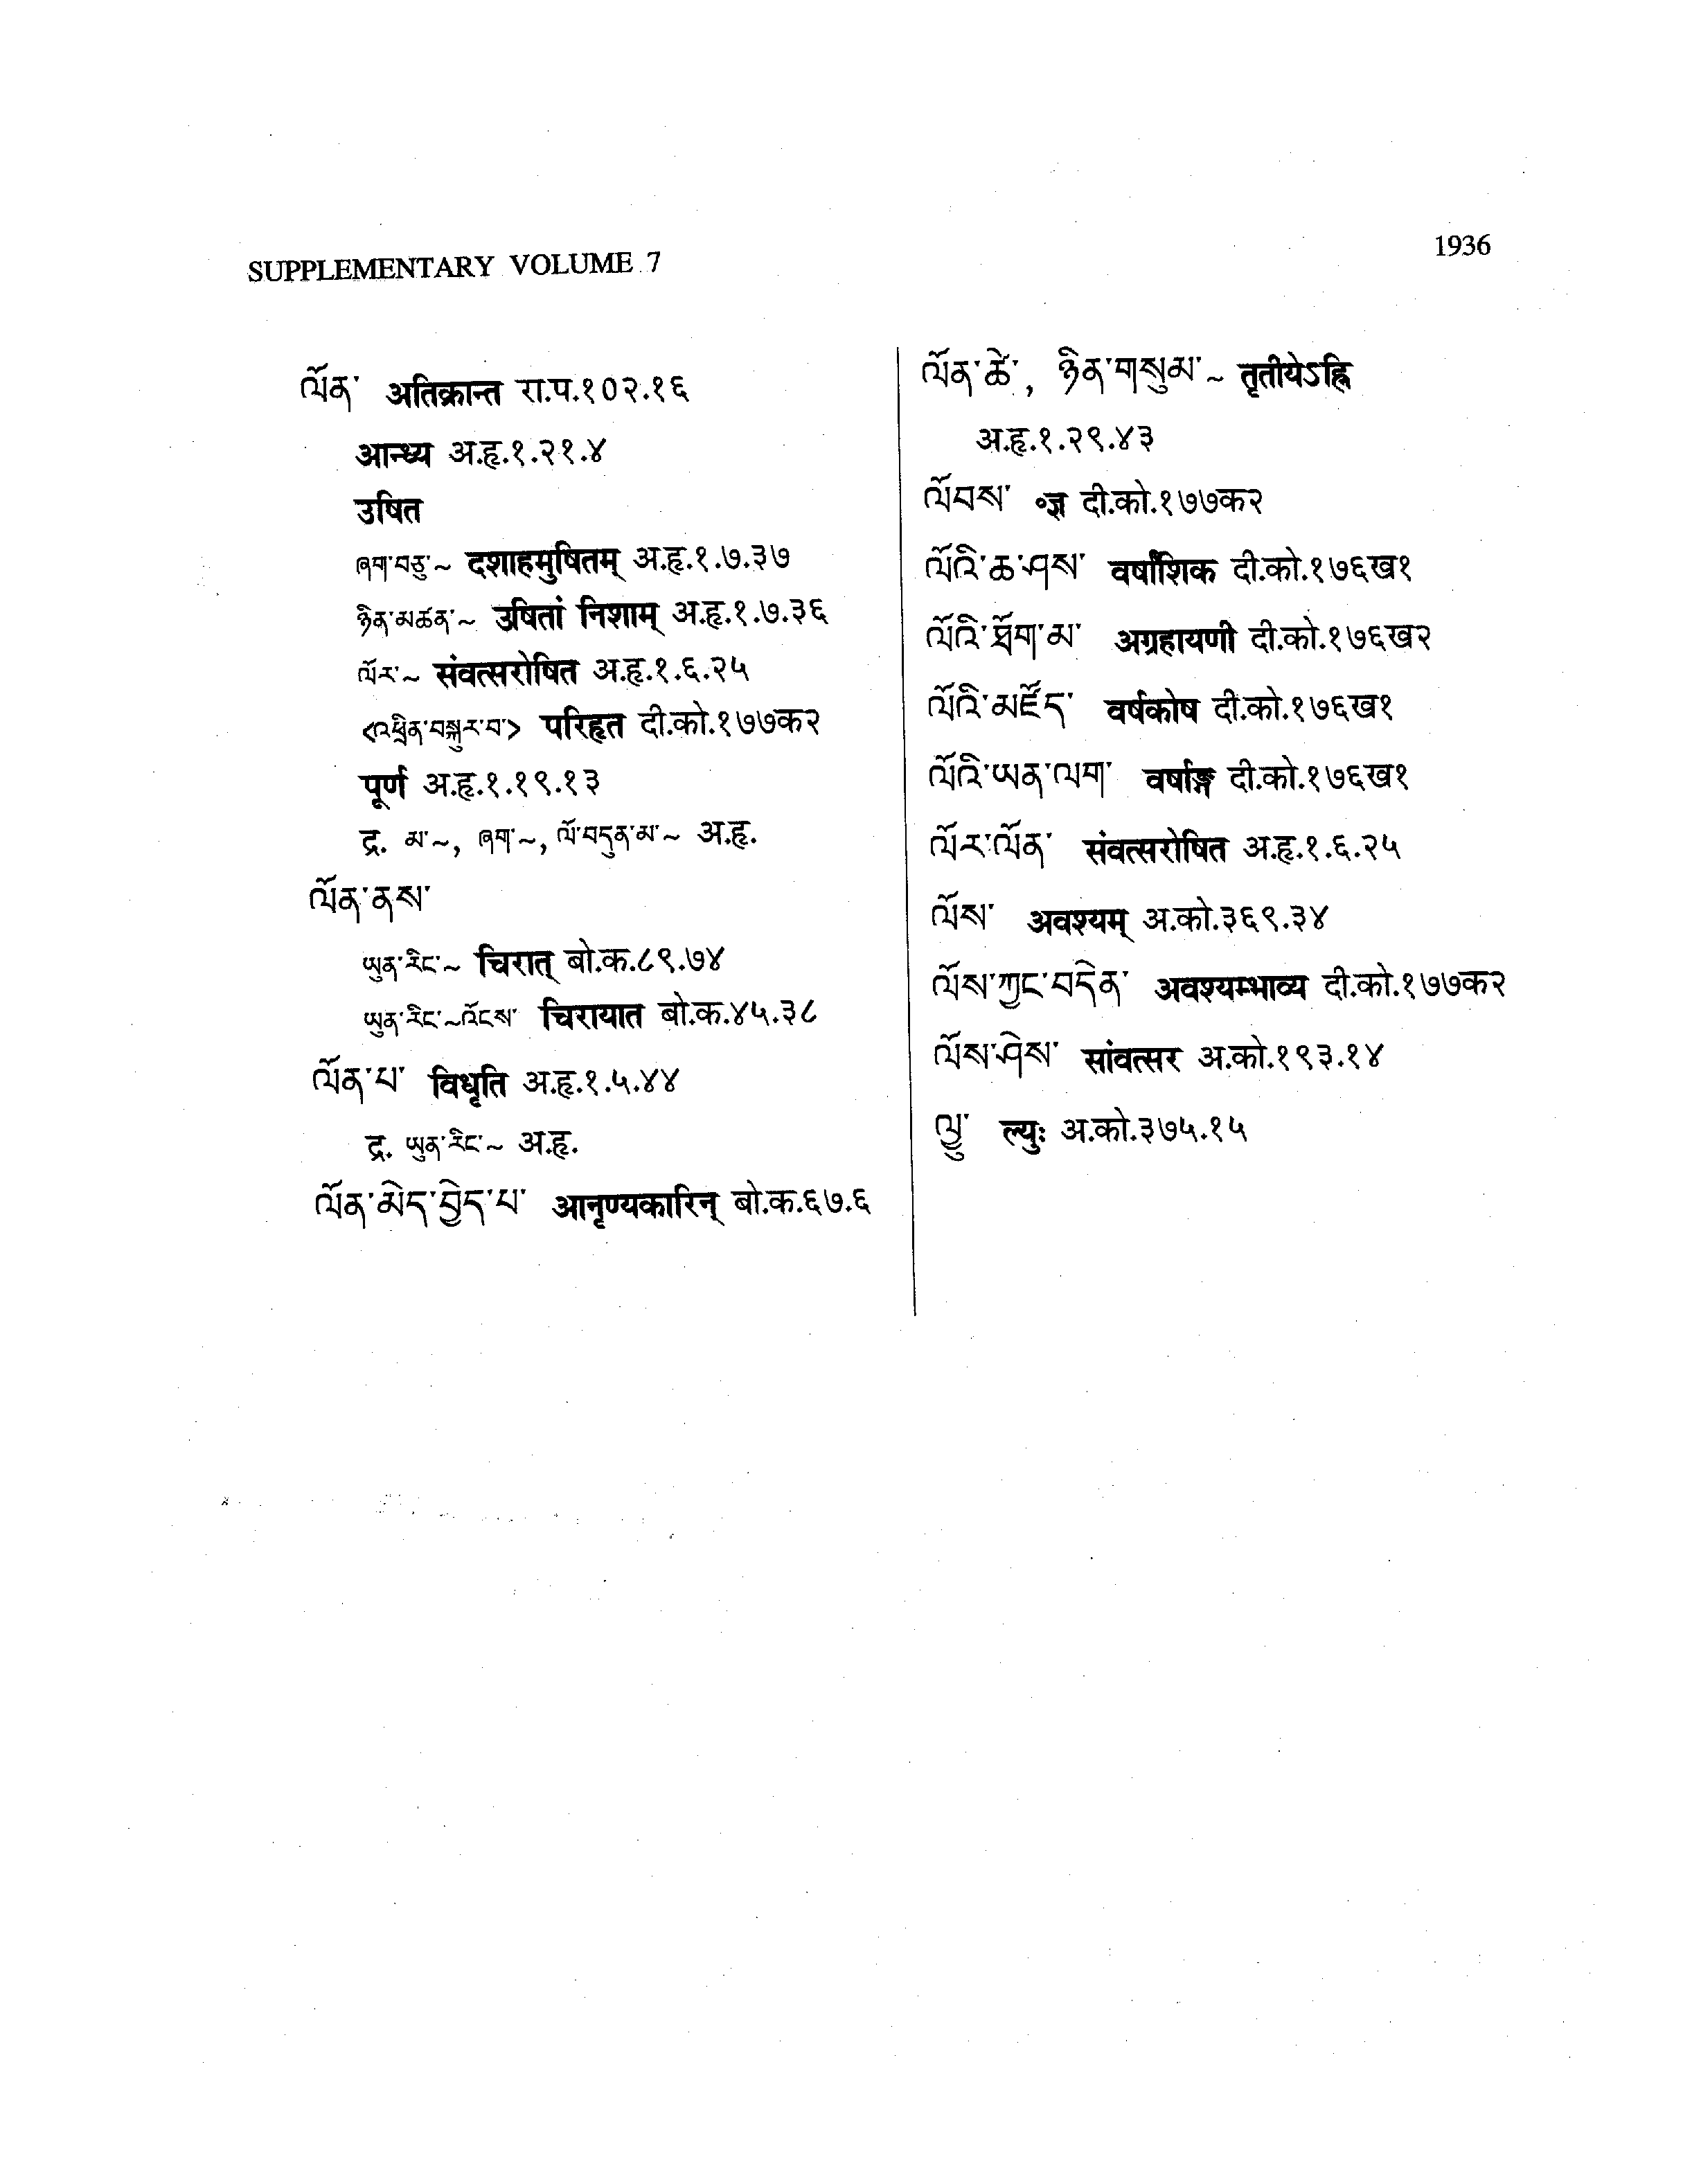 SUPPLEMENTARY VOLUME 7
1936
ལོན་ अतिक्रान्त रा.प.१०२.१६
आन्ध्य अ.हृ.१.२१.४
उषित
ཞག་བཅུ་~ दशाहमुषितम् अ.हृ.१.७.३७
ཉིན་མཚན་~ उषितां निशाम् अ.हृ.१.७.३६
ལོར་~ संवत्सरोषित अ.हृ.१.६.२५
<འཕྲིན་བསྐུར་བ་> परिहृत दी.को.१७७क२
पूर्ण अ.हृ.१.१९.१३
द्र. མ་~, ཞག་~, ལོ་བདུན་མ་~ अ.हृ.
ལོན་ནས་
ཡུན་རིང་~ चिरात् बो.क.८९.७४
ཡུན་རིང་~འོངས་ चिरायात बो.क.४५.३८
ལོན་པ་ विधृति अ.हृ.१.५.४४
द्र. ཡུན་རིང་~ अ.हृ.
ལོན་མེད་བྱེད་པ་ आनृण्यकारिन् बो.क.६७.६
ལོན་ཚེ་, ཉིན་གསུམ་~ तृतीयेऽह्नि
अ.हृ.१.२९.४३
ལོབས་ ॰ज्ञ दी.को.१७७क२
ལོའི་ཆ་ཤས་ वर्षांशिक दी.को.१७६ख१
ལོའི་ཐོག་མ་ अग्रहायणी दी.को.१७६ख२
ལོའི་མཛོད་ वर्षकोष दी.को.१७६ख१
ལོའི་ཡན་ལག་ वर्षाङ्ग दी.को.१७६ख१
ལོར་ལོན་ संवत्सरोषित अ.हृ.१.६.२५
ལོས་ अवश्यम् अ.को.३६९.३४
ལོས་ཀྱང་བདེན་ अवश्यम्भाव्य दी.को.१७७क२
ལོས་ཤེས་ सांवत्सर अ.को.१९३.१४
ལྱུ་ ल्युः अ.को.३७५.१५